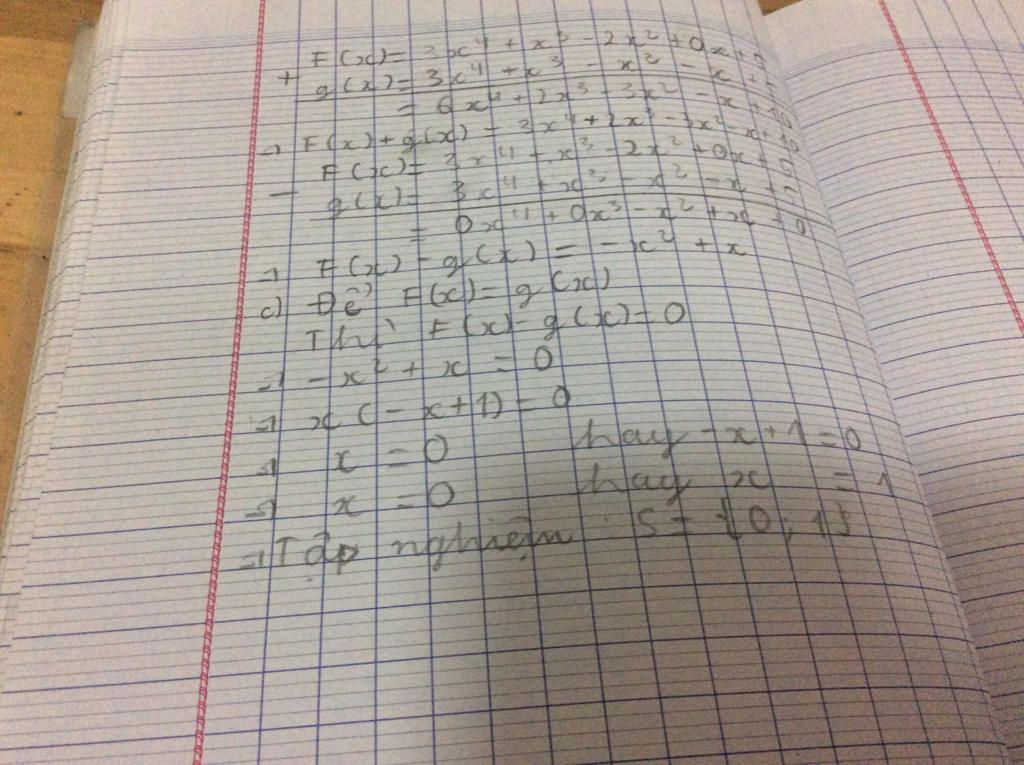 F(x) = 3x⁴ + x³ - 2x² + 0x + 5
+ g(x) = 3x⁴ + x³ - x² - x + 5
= 6x⁴ + 2x³ - 3x² - x + 10
→ F(x) + g(x) = 3x⁴ + 2x³ - 3x² - x + 10
F(x) = 3x⁴ + x³ - 2x² + 0x + 5
- g(x) = 3x⁴ + x³ - x² - x + 5
= 0x⁴ + 0x³ - x² + x + 0
→ F(x) - g(x) = - x² + x
c) Để F(x) = g(x)
Thì F(x) - g(x) = 0
→ - x² + x = 0
→ x (- x + 1) = 0
→ x = 0 hay - x + 1 = 0
→ x = 0 hay x = 1
→ Tập nghiệm : S = {0, 1}